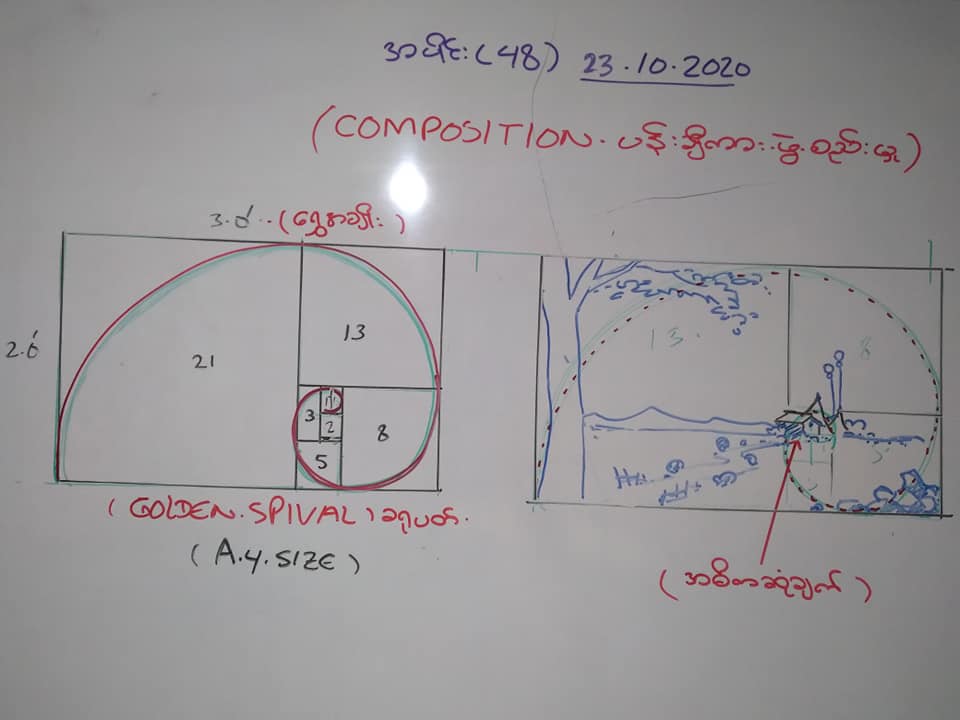 အပိုင်း(48) 23.10.2020
(COMPOSITION. ပန်းချီကား ဖွဲ့စည်းမှု)
3.ဝံ (ရွှေအချိုး)
2.ဝံ
21
13
3
1
1
2
8
5
(GOLDEN.SPIVAL) ခရုပတ်.
(A.4.SIZE)
13.
8
5
(အဓိကဆုံချက်)